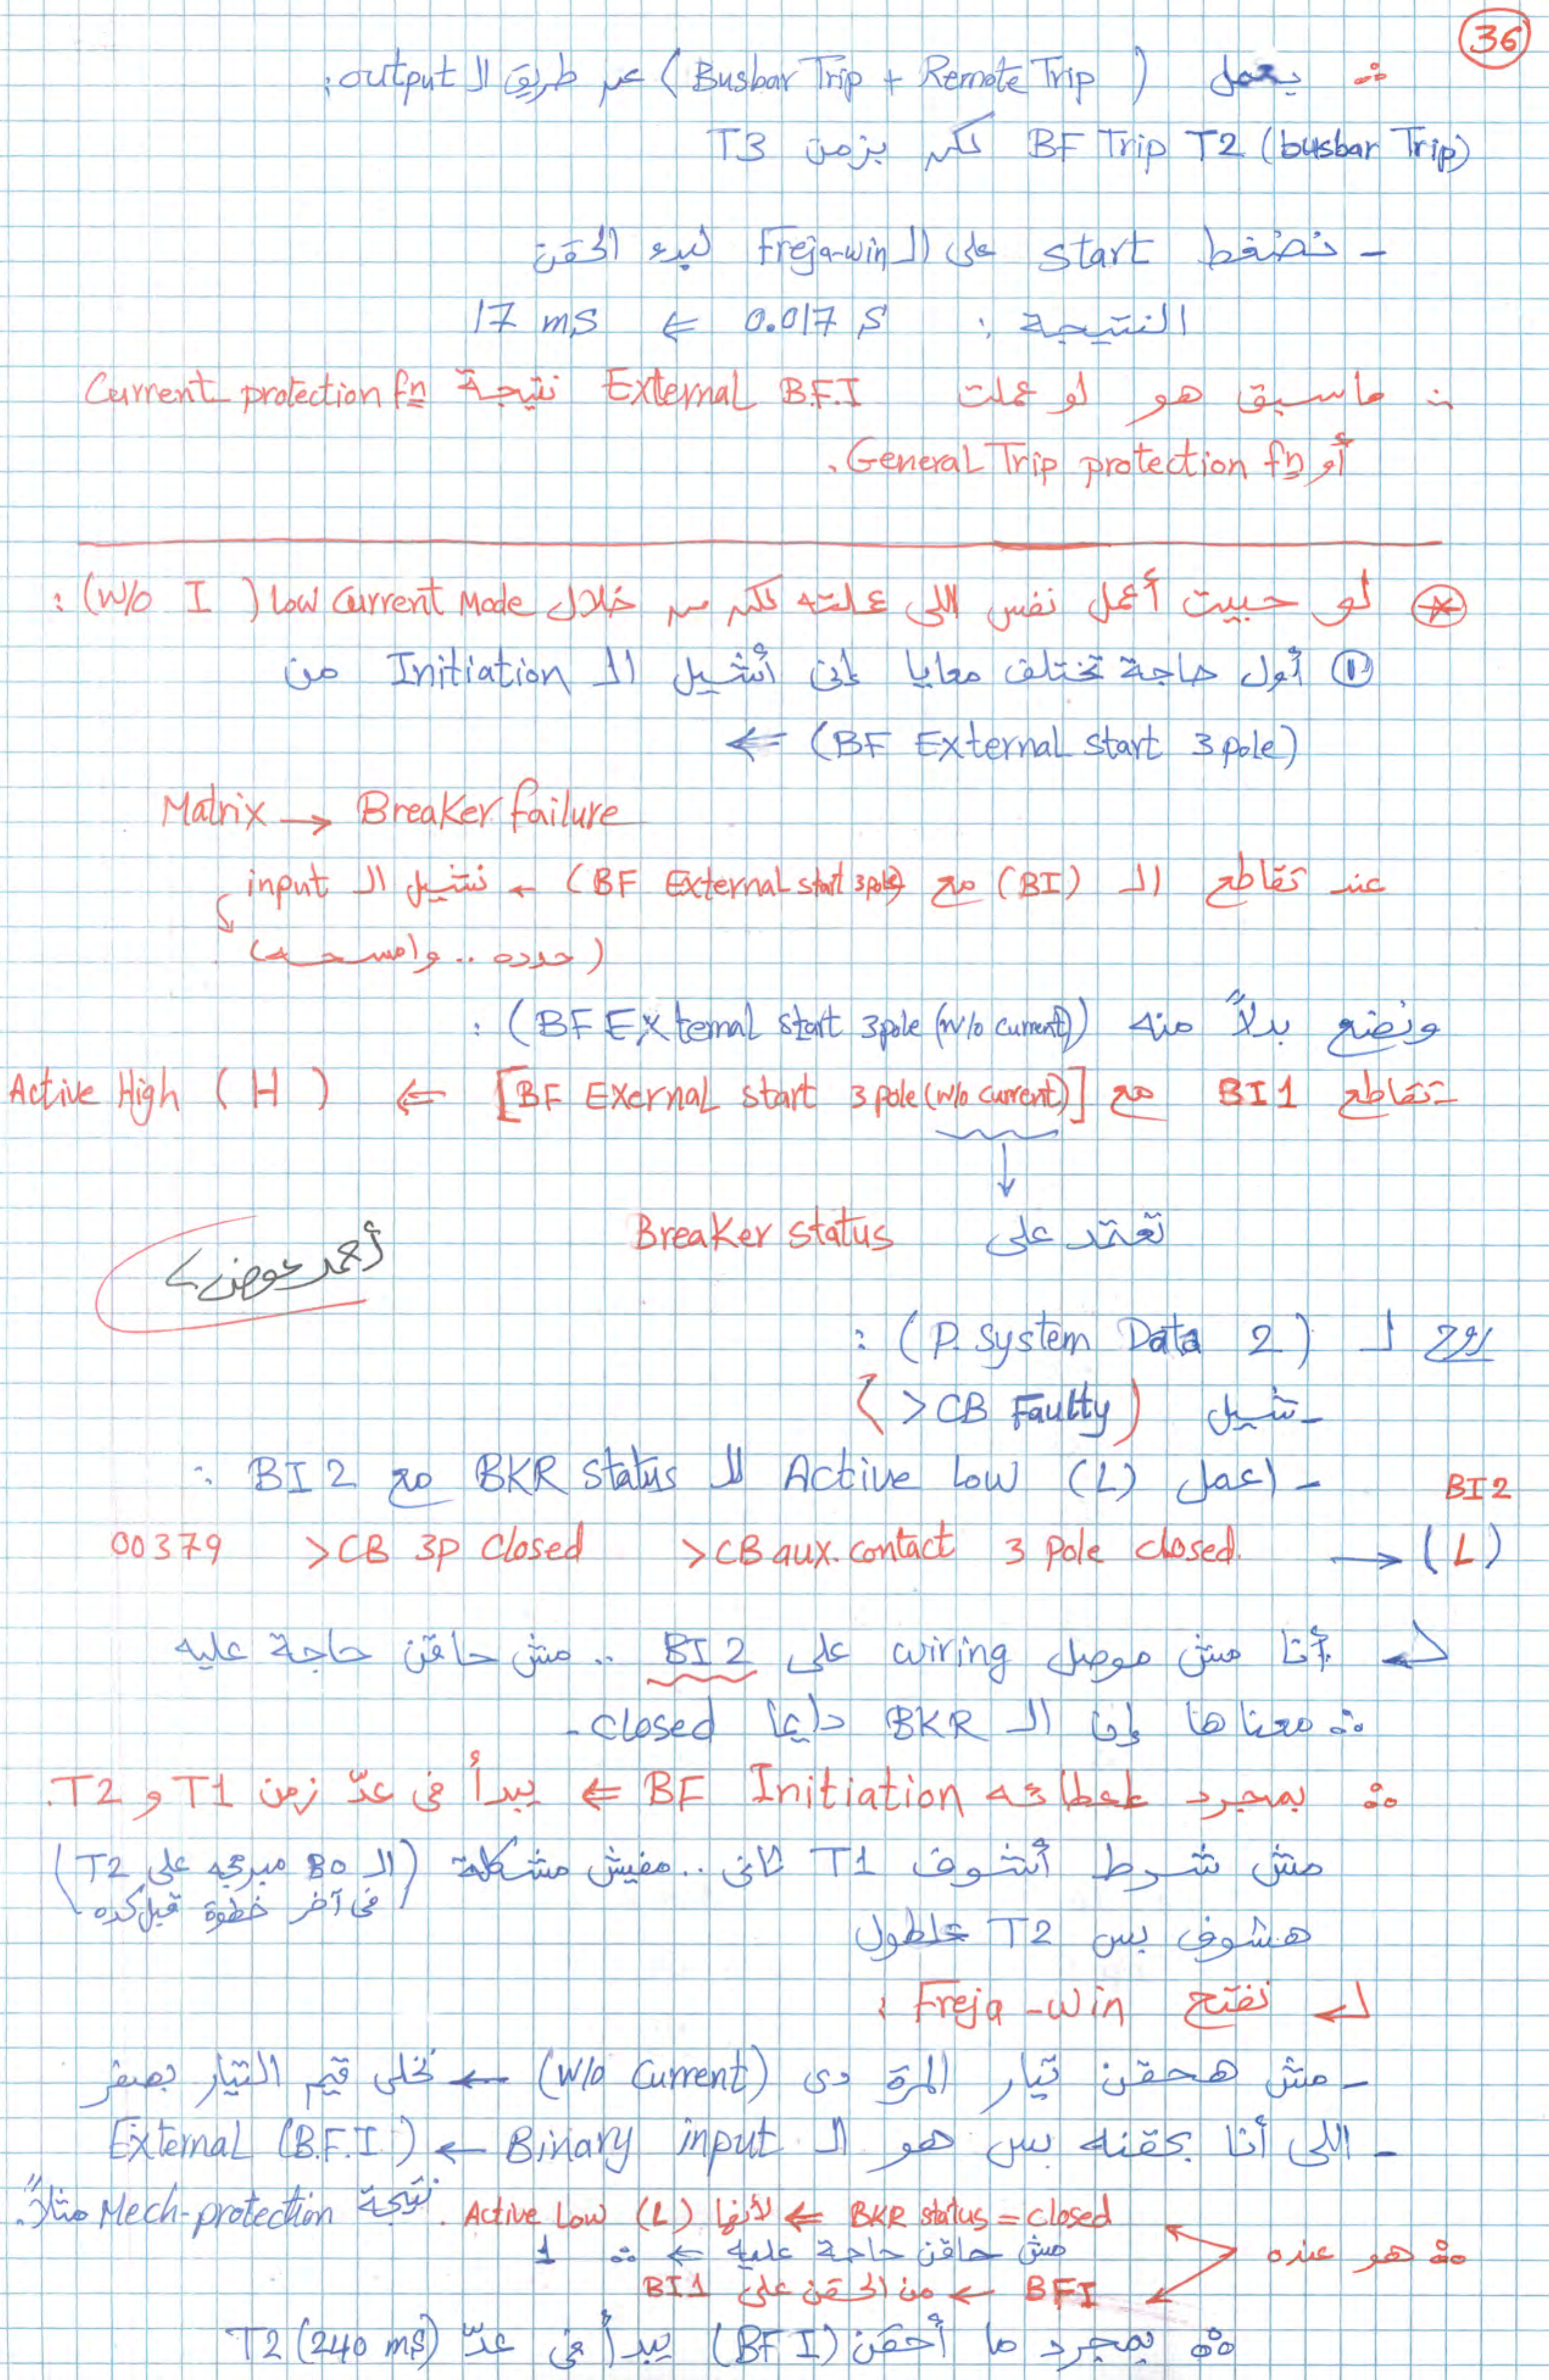 36
∴ يعمل (Busbar Trip + Remote Trip) عن طريق الـ output:
BF Trip T2 (busbar Trip) لكن بزمن T3
- نضغط start على الـ Freja-win لبدء الحقن
النتيجة : 0.017 S ⇐ 17 ms
∴ ماسبق هو لو عملت External B.F.I نتيجة Current protection fn
أو General Trip protection fn.
* لو حبيت أعمل نفس اللى عملته لكن من خلال Low Current Mode (W/o I) :
① أول حاجة تختلف معايا إنى أشيل الـ Initiation من
(BF External start 3 pole) ⇐
Matrix → Breaker failure
عند تقاطع الـ (BI) مع (BF External start 3 pole) ← نشيل الـ input
(حدده .. وامسحه)
ونضع بدلاً منه (BF External start 3 pole (w/o current)) :
- تقاطع BI1 مع [BF Exernal start 3 pole (w/o current)] ⇐ Active High (H)
تعتمد على Breaker status
أحمد عوض
روح لـ (P. System Data 2) :
- شيل (>CB Faulty)
- اعمل Active Low (L) للـ BKR status مع BI2 :
BI2
00379 >CB 3p Closed >CB aux. contact 3 pole closed. → (L)
أنا مش موصل wiring على BI2 .. مش حاقن حاجة عليه
∴ معناها إن الـ BKR دايما closed.
∴ بمجرد إعطائه BF Initiation ⇐ يبدأ فى عدّ زمن T1 و T2.
مش شرط أشوف T1 تانى .. مفيش مشكلة (الـ BO مبرمجه على T2
فى آخر خطوة قبل كده)
هشوف بس T2 علطول
نفتح Freja-win :
- مش هحقن تيار المرة دى (W/o Current) ← نخلى قيم التيار بصفر
- اللى أنا بحقنه بس هو الـ Binary input ← External (B.F.I)
نتيجة Mech-protection مثلاً.
∴ هو عنده BKR status = closed ⇐ لأنها Active Low (L)
مش حاقن حاجة عليه ⇐ ∴ 1
BFI ← من الحقن على BI1
∴ بمجرد ما أحقن (BFI) يبدأ فى عدّ T2 (240 ms)